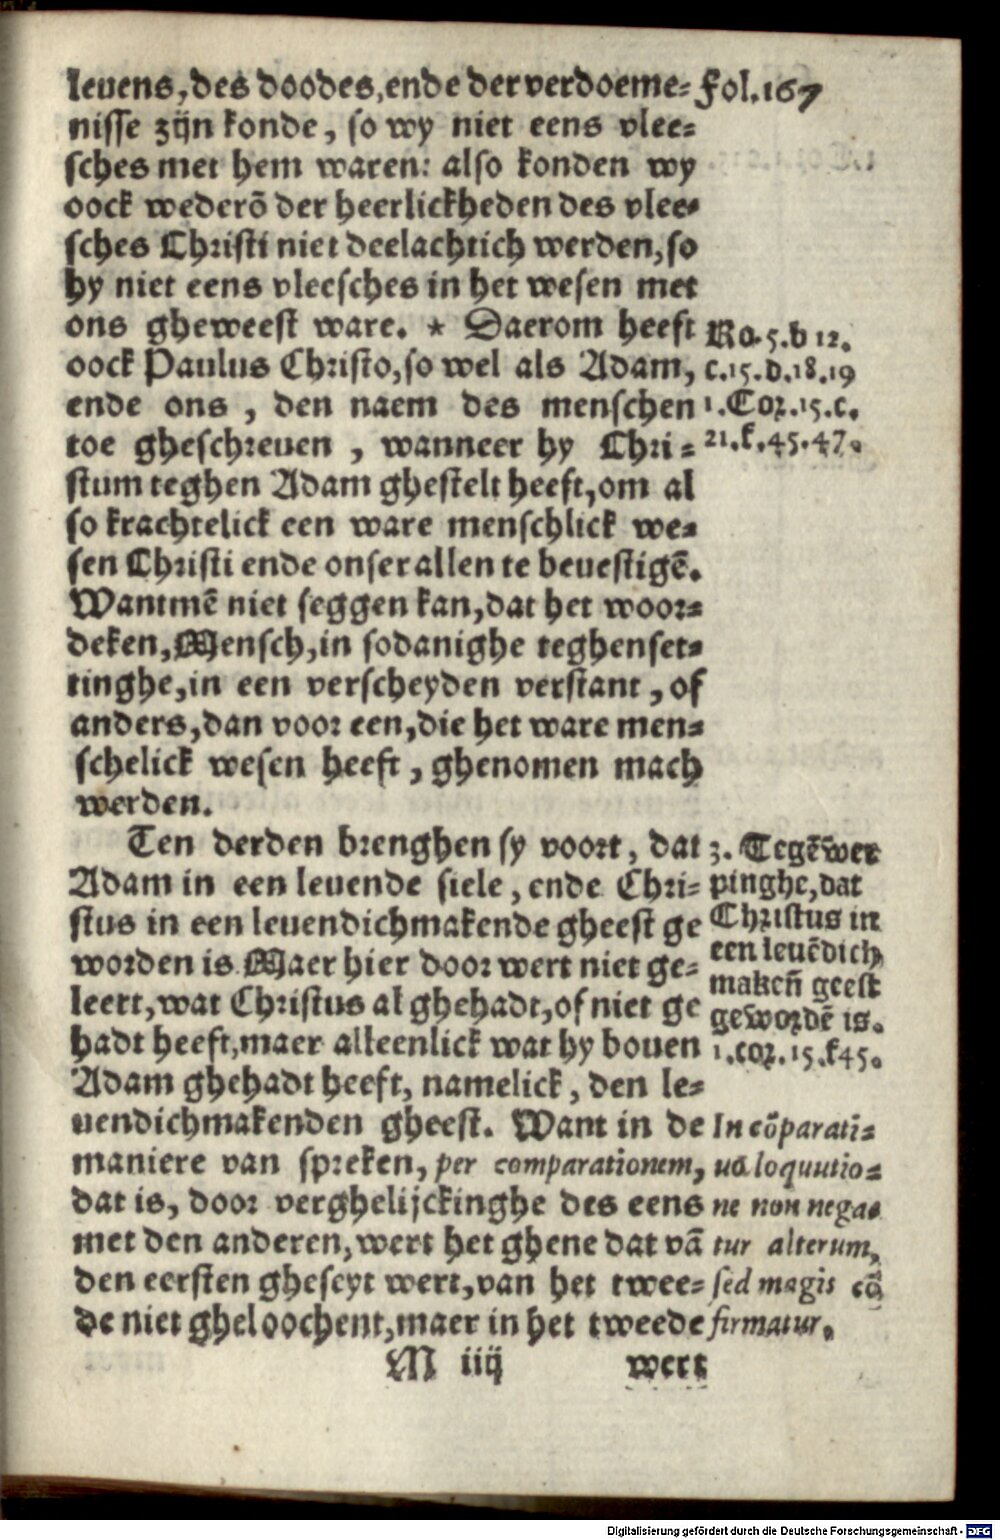 Fol.167
leuens, des doodes, ende der verdoeme-
nisse zijn konde, so wy niet eens vlee-
sches met hem waren: also konden wy
oock wederō der heerlickheden des vlee-
sches Christi niet deelachtich werden, so
hy niet eens vleesches in het wesen met
ons gheweest ware. * Daerom heeft
oock Paulus Christo, so wel als Adam,
ende ons, den naem des menschen
toe gheschreuen, wanneer hy Chri-
stum teghen Adam ghestelt heeft, om al
so krachtelick een ware menschlick we-
sen Christi ende onser allen te beuestigē.
Wantmē niet seggen kan, dat het woor-
deken, Mensch, in sodanighe teghenset-
tinghe, in een verscheyden verstant, of
anders, dan voor een, die het ware men-
schelick wesen heeft, ghenomen mach
werden.
Ro.5.b 12.
c.15.d.18.19
1.Cor.15.c.
21.f.45.47.
Ten derden brenghen sy voort, dat
Adam in een leuende siele, ende Chri-
stus in een leuendichmakende gheest ge
worden is. Maer hier door wert niet ge-
leert, wat Christus al ghehadt, of niet ge
hadt heeft, maer alleenlick wat hy bouen
Adam ghehadt heeft, namelick, den le-
uendichmakenden gheest. Want in de
maniere van spreken, per comparationem,
dat is, door verghelijckinghe des eens
met den anderen, wert het ghene dat vā
den eersten gheseyt wert, van het twee-
de niet gheloochent, maer in het tweede
3. Tegēwer
pinghe, dat
Christus in
een leuēdich
makeñ geest
gewordē is.
1.cor.15.f45.
In cōparati-
ua loquutio-
ne non nega-
tur alterum,
sed magis cō
firmatur.
M iiij
wert
Digitalisierung gefördert durch die Deutsche Forschungsgemeinschaft - DFG